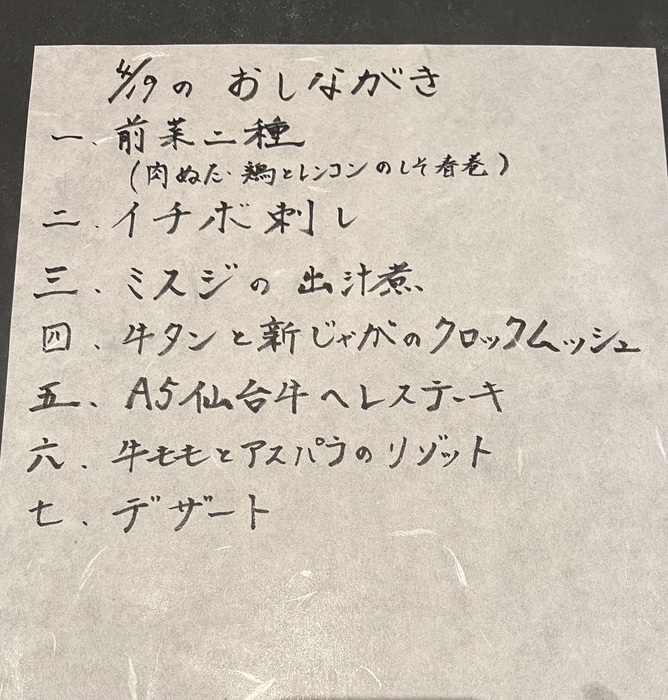 4/19の おしながき
一、前菜二種
(肉ぬた・鶏とレンコンのしそ春巻)
二、イチボ刺し
三、ミスジの出汁煮、
四、牛タンと新じゃがのクロックムッシュ
五、A5仙台牛ヘレステーキ
六、牛ももとアスパラのリゾット
七、デザート